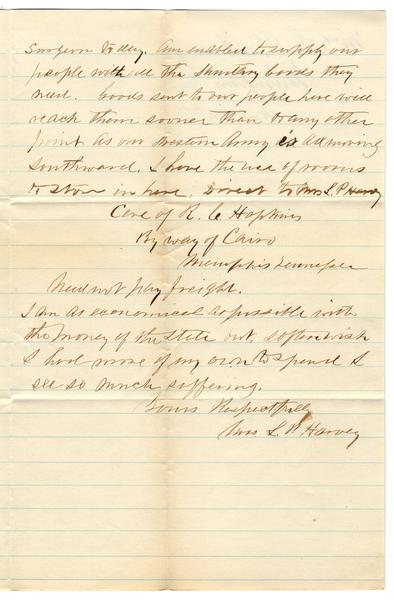 Surgeon to day. am enabled to supply our
people with all the Sanitary Goods they
need. Goods sent to our people here will
reach them sooner than to any other
point as our Western Army is all moving
Southward. I have the use of rooms
to store in here. Direct to Mrs L. P Harvey
Care of R. C Hopkins
By way of Cairo
Memphis Tennessee
Need not pay freight.
I am as economical as possible with
the money of the State but, I often wish
I had more of my own to spend I
see so much suffering.
Yours Respectfully
Mrs L. P Harvey